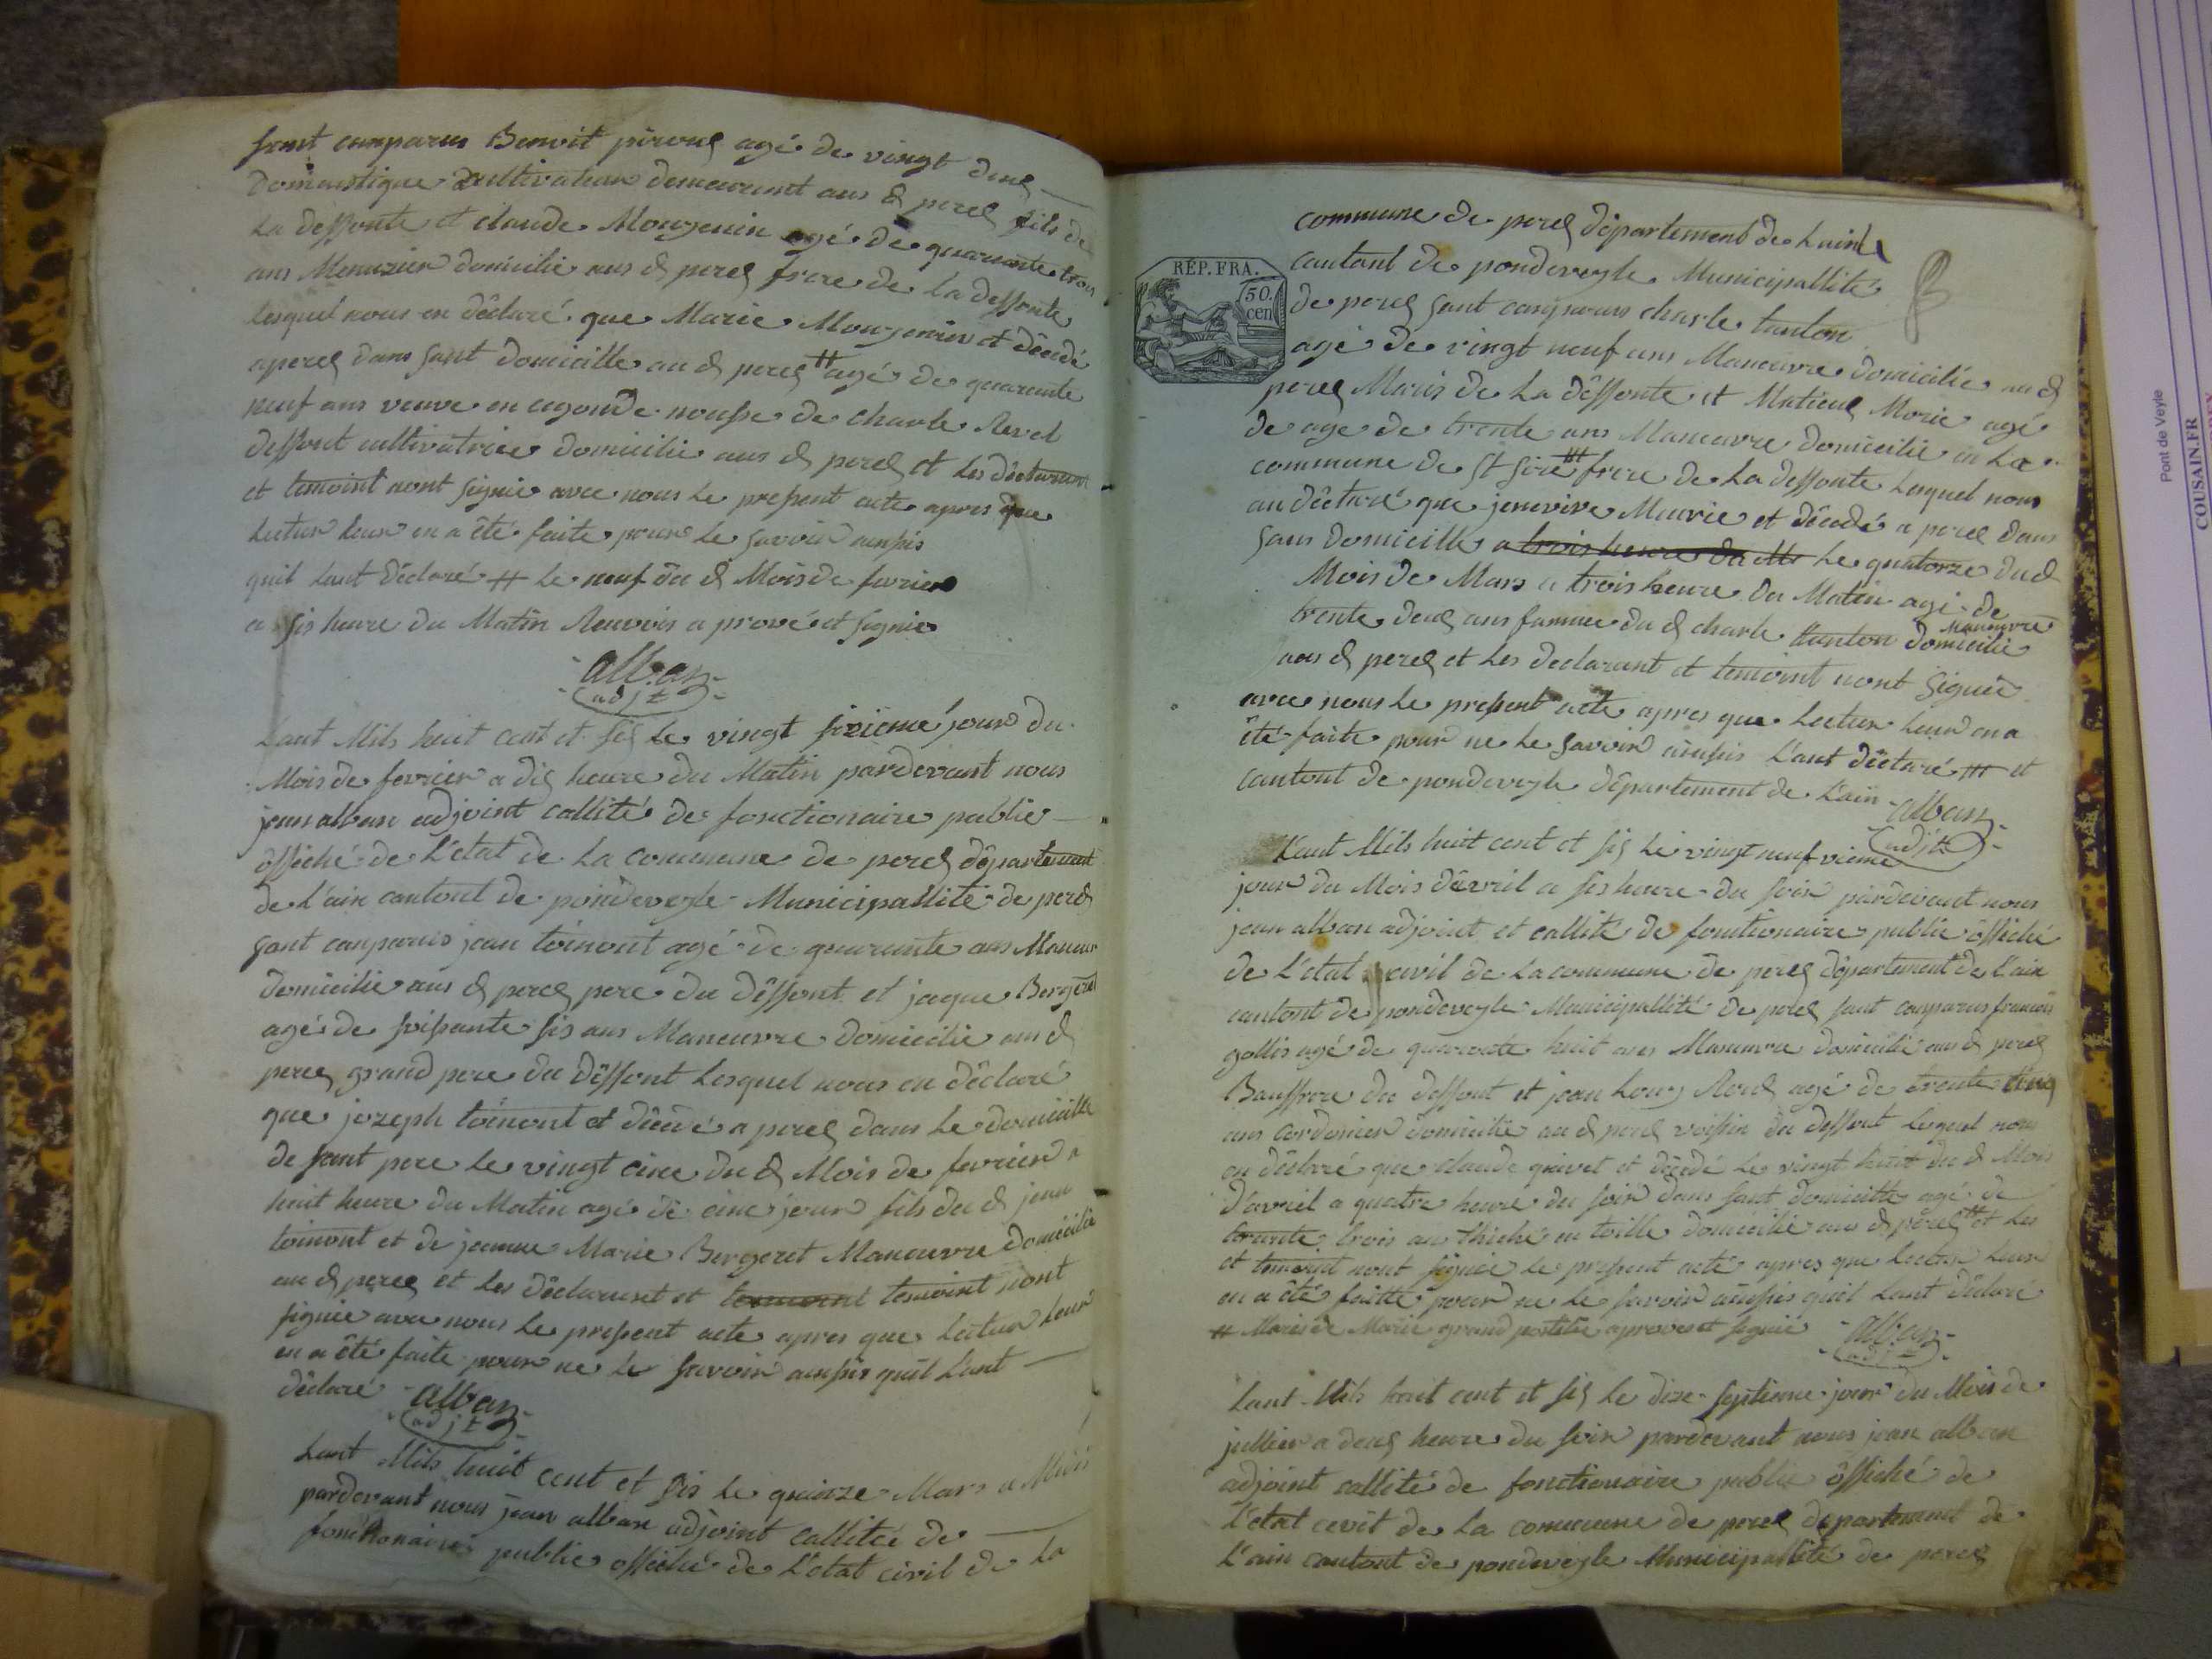 sont comparus Benoit piroud agé de vingt deus
Domaistique Cultivateur demeurant aus d perex fils de
La deffonte et claude Mougenin agé de quarante trois
ans Menuzier domicilie aus d perex frere de La deffonte
lesquel nous on déclaré que Marie Mougenin et décedé
a perex dans sont domicille au d perex # agé de quarente
neuf ans veuve en segonde nousse de charle Revel
deffont cultivatrice domicilie aus d perex et les déclarant
et temoint nont signie avec nous Le present acte apres que
Lectur leur en a été faite pour Le savoir ainsis
quil Lant déclaré # Le neuf du d Mois de fevrier
a sis heure du Matin Renvois a prové et signie
alban
adjt
Lant Mils huit cent et six Le vingt sizieme jour du
Mois de fevrier a dix heure du Matin pardevant nous
jean alban adjoint callité de fonctionaire public
officié de L'état de La commune de perex département
de L'ain cantont de pondeveyle Municipallité de perex
sant conparus jean toinont agé de quarante ans Maneuvr
domicilie aus d perex pere du deffont et jaque Bergeret
agé de soisante sis ans Maneuvre domicilie aus d
perex grand pere du deffont Lesquel nous on déclaré
que jozeph toinont et décédé a perex dans Le domicille
de sant pere Le vingt cinc du d Mois de fevrier a
huit heure du Matin agé de cinc jour fils du d jean
toinont et de jeanne Marie Bergeret Maneuvre domicilie
au d perex et Les déclarant et temoint nont
signie avec nous Le present acte apres que Lectur Leur
en a été faite pour ne Le savoir ainsis quil Lant
déclaré alban
adjt
Lant Mils huit cent et sis Le quinze Mars a Midi
pardevant nous jean alban adjoint callité de
fonctionaire public officié de L'état civil de La
commune de perex département de Lain
Cantont de pondeveyle Municipallité
RÉP. FRA.
50. cen
de perex sant conparus charle tanton
agé de vingt neuf ans Maneuvre domicilie au d
perex Maris de La deffonte et Matieus Morie agé
de age de trente ans Maneuvre domicilie en La
commune de St Sire ## frere de La deffonte Lesquel nous
on déclaré que jenevive Meurie et décedé a perex dans
sans domicille a trois heure du Le quatorze du d
Mois de Mars a trois heure du Matin agé de
trente deus ans famme du d charle tanton Maneuvre domicilie
aus d perex et Les declarant et temoint nont signié
avec nous Le present acte apres que Lectur Leur en a
été faite pour ne Le savoir ainsis L'ant déclaré ## et
cantont de pondeveyle département de L'ain
alban
adjt
L'ant Mils huit cent et six Le vingt neuf vieme
jour du Mois d'avril a sis heure du soir pardevant nous
jean alban adjoint et callité de fonctionaire public officié
de L'état civil de La commune de perex département de L'ain
cantont de pondeveyle Municipallité de perex sant conparus francois
gollis agé de quarente huit ans Maneuvre domicilie aus d perex
Bauffrere du deffont et jean Louy Roux agé de trente cinq
ans cordonier domicilie au d perex voisin du deffont Lequel nous
on déclaré que claude grivet et décédé Le vingt huit du d Mois
D'avril a quatre heure du soir dans sant domicille agé de
trante trois an thiché en toille domicilie aus d perex # et Les
et temoint nont signie Le present acte apres que Lectur Leur
en a été faitte pour ne Le savoir ainsis quil Lant déclaré
# Maris de Marie grand aprové et signié
alban
adjt
Lant Mils huit cent et six Le dix septieme jour du Mois de
jullier a deus heure du soir pardevant nous jean alban
adjoint callité de fonctionaire public officié de
L'état cevit de La commune de perex departement de
L'ain cantont de pondeveyle Municipallité de perex
Pont de Veyle
COUSAIN.FR